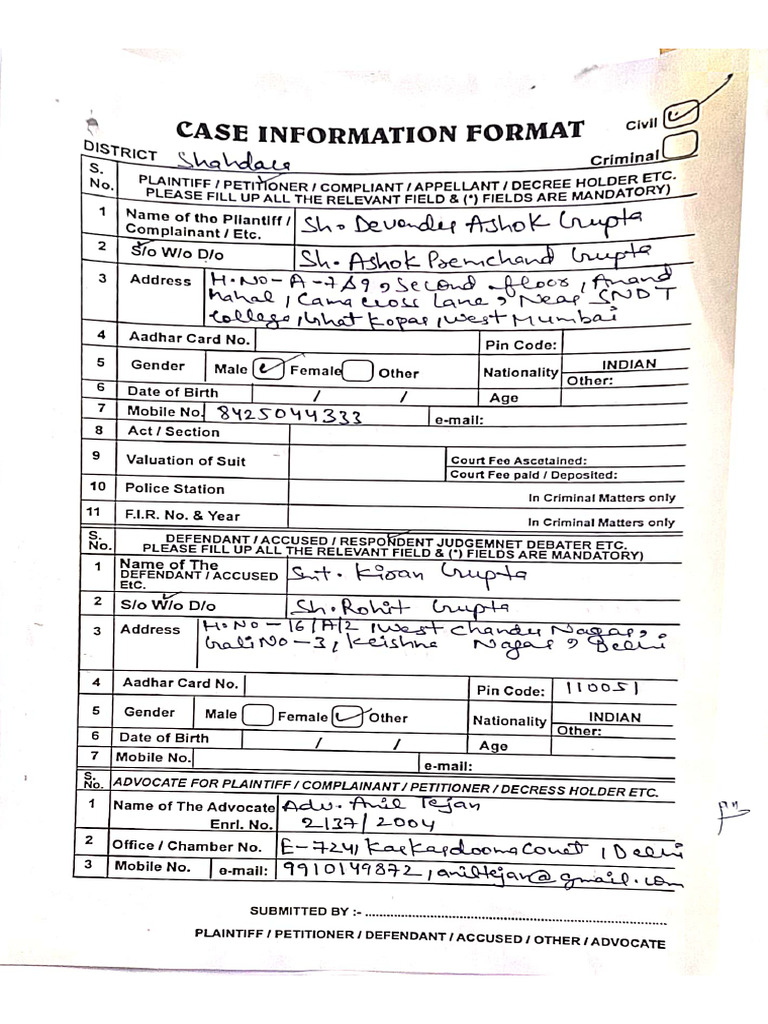 CASE INFORMATION FORMAT
Civil
Criminal
DISTRICT Shahdara
S. No. PLAINTIFF / PETITIONER / COMPLIANT / APPELLANT / DECREE HOLDER ETC.
PLEASE FILL UP ALL THE RELEVANT FIELD & (*) FIELDS ARE MANDATORY)
1 Name of the Pliantiff / Complainant / Etc. Sh. Devender Ashok Gupta
2 S/o W/o D/o Sh. Ashok Premchand Gupta
3 Address H.No-A-7/19, Second floor, Anand
Mahal, Cama Cross Lane, Near SNDT
College, Ghatkopar, West Mumbai
4 Aadhar Card No. Pin Code:
5 Gender Male Female Other Nationality INDIAN
Other:
6 Date of Birth / / Age
7 Mobile No. 8425044333 e-mail:
8 Act / Section
9 Valuation of Suit Court Fee Ascetained:
Court Fee paid / Deposited:
10 Police Station In Criminal Matters only
11 F.I.R. No. & Year In Criminal Matters only
S. No. DEFENDANT / ACCUSED / RESPONDENT JUDGEMNET DEBATER ETC.
PLEASE FILL UP ALL THE RELEVANT FIELD & (*) FIELDS ARE MANDATORY)
1 Name of The DEFENDANT / ACCUSED EtC. Smt. Kiran Gupta
2 S/o W/o D/o Sh. Rohit Gupta
3 Address H.No-16/A/2, West Chander Nagar,
Gali No-3, Krishna Nagar, Delhi
4 Aadhar Card No. Pin Code: 110051
5 Gender Male Female Other Nationality INDIAN
Other:
6 Date of Birth / / Age
7 Mobile No. e-mail:
S. No. ADVOCATE FOR PLAINTIFF / COMPLAINANT / PETITIONER / DECRESS HOLDER ETC.
1 Name of The Advocate Adv. Anil Tejan
Enrl. No. 2137/2004
2 Office / Chamber No. E-724, Karkardooma Court, Delhi
3 Mobile No. e-mail: 9910149872, aniltejan@gmail.com
SUBMITTED BY :- ........................................
PLAINTIFF / PETITIONER / DEFENDANT / ACCUSED / OTHER / ADVOCATE